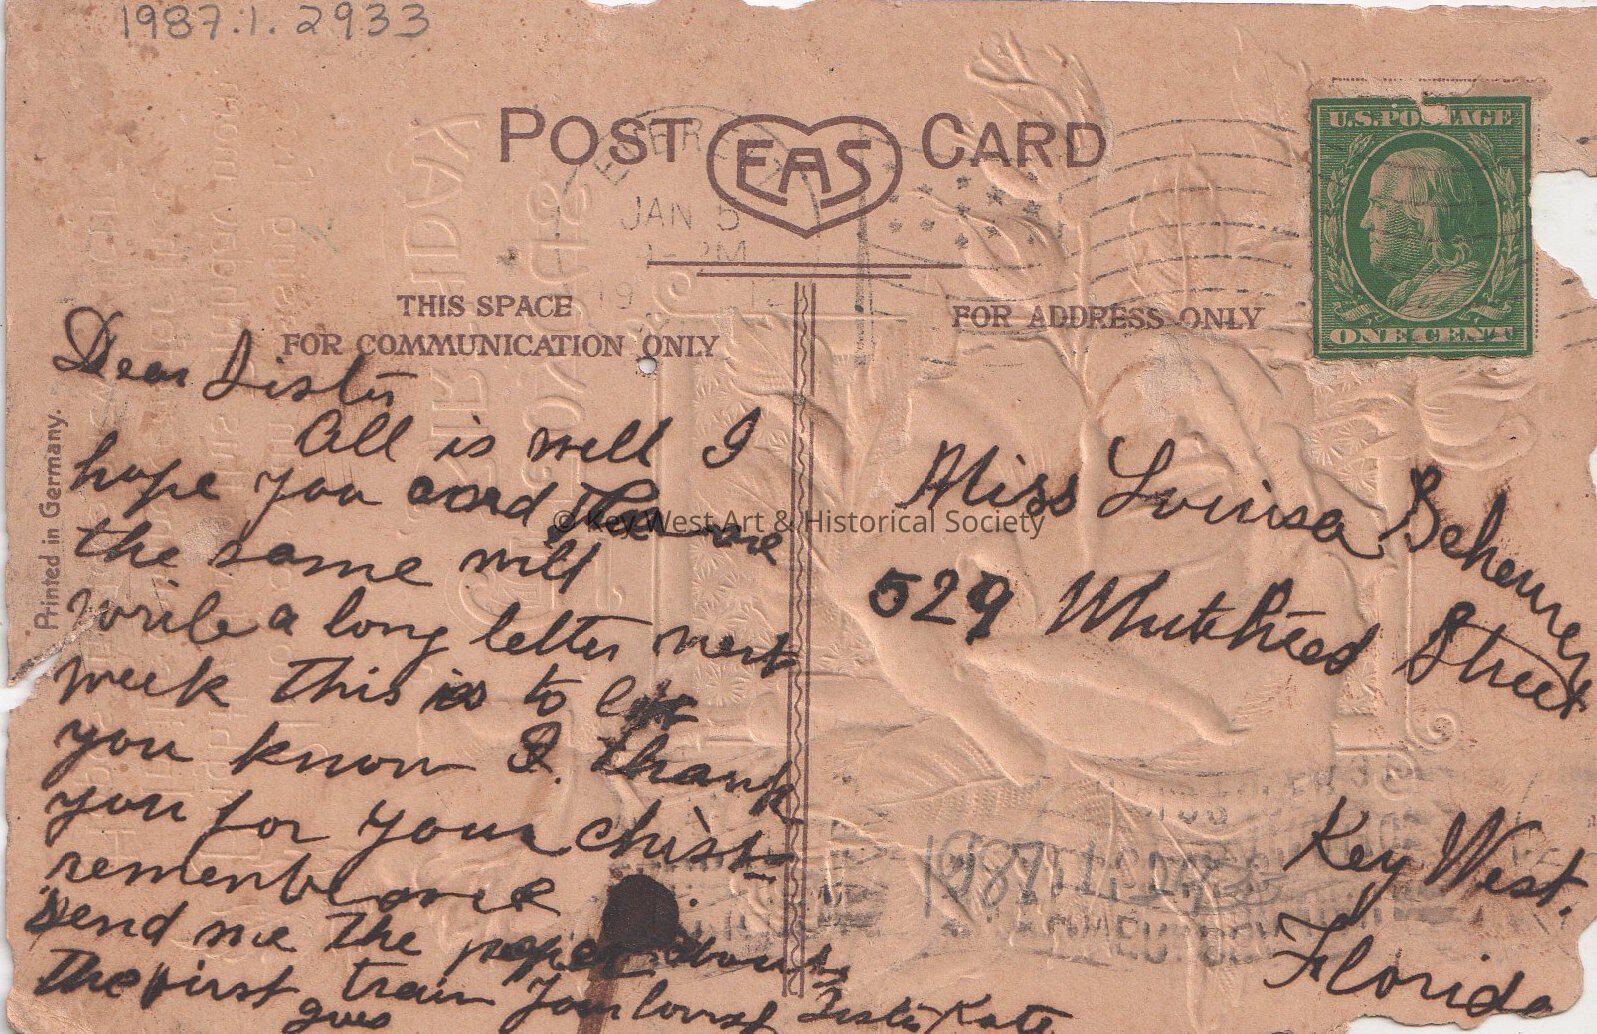 1987.1.2933
POST CARD
EAS
U.S. POSTAGE
ONE CENT
JAN 5
PM
THIS SPACE
FOR COMMUNICATION ONLY
FOR ADDRESS ONLY
Printed in Germany.
Dear Sister
All is well I
hope you and
the same will
write a long letter next
week this is to let
you know I thank
you for your christ-
rememberance
send me the paper about
the first train Your loving Sister Kate
goes
Miss Louisa Behemey
529 Whitehead Street
Key West.
Florida
© Key West Art & Historical Society